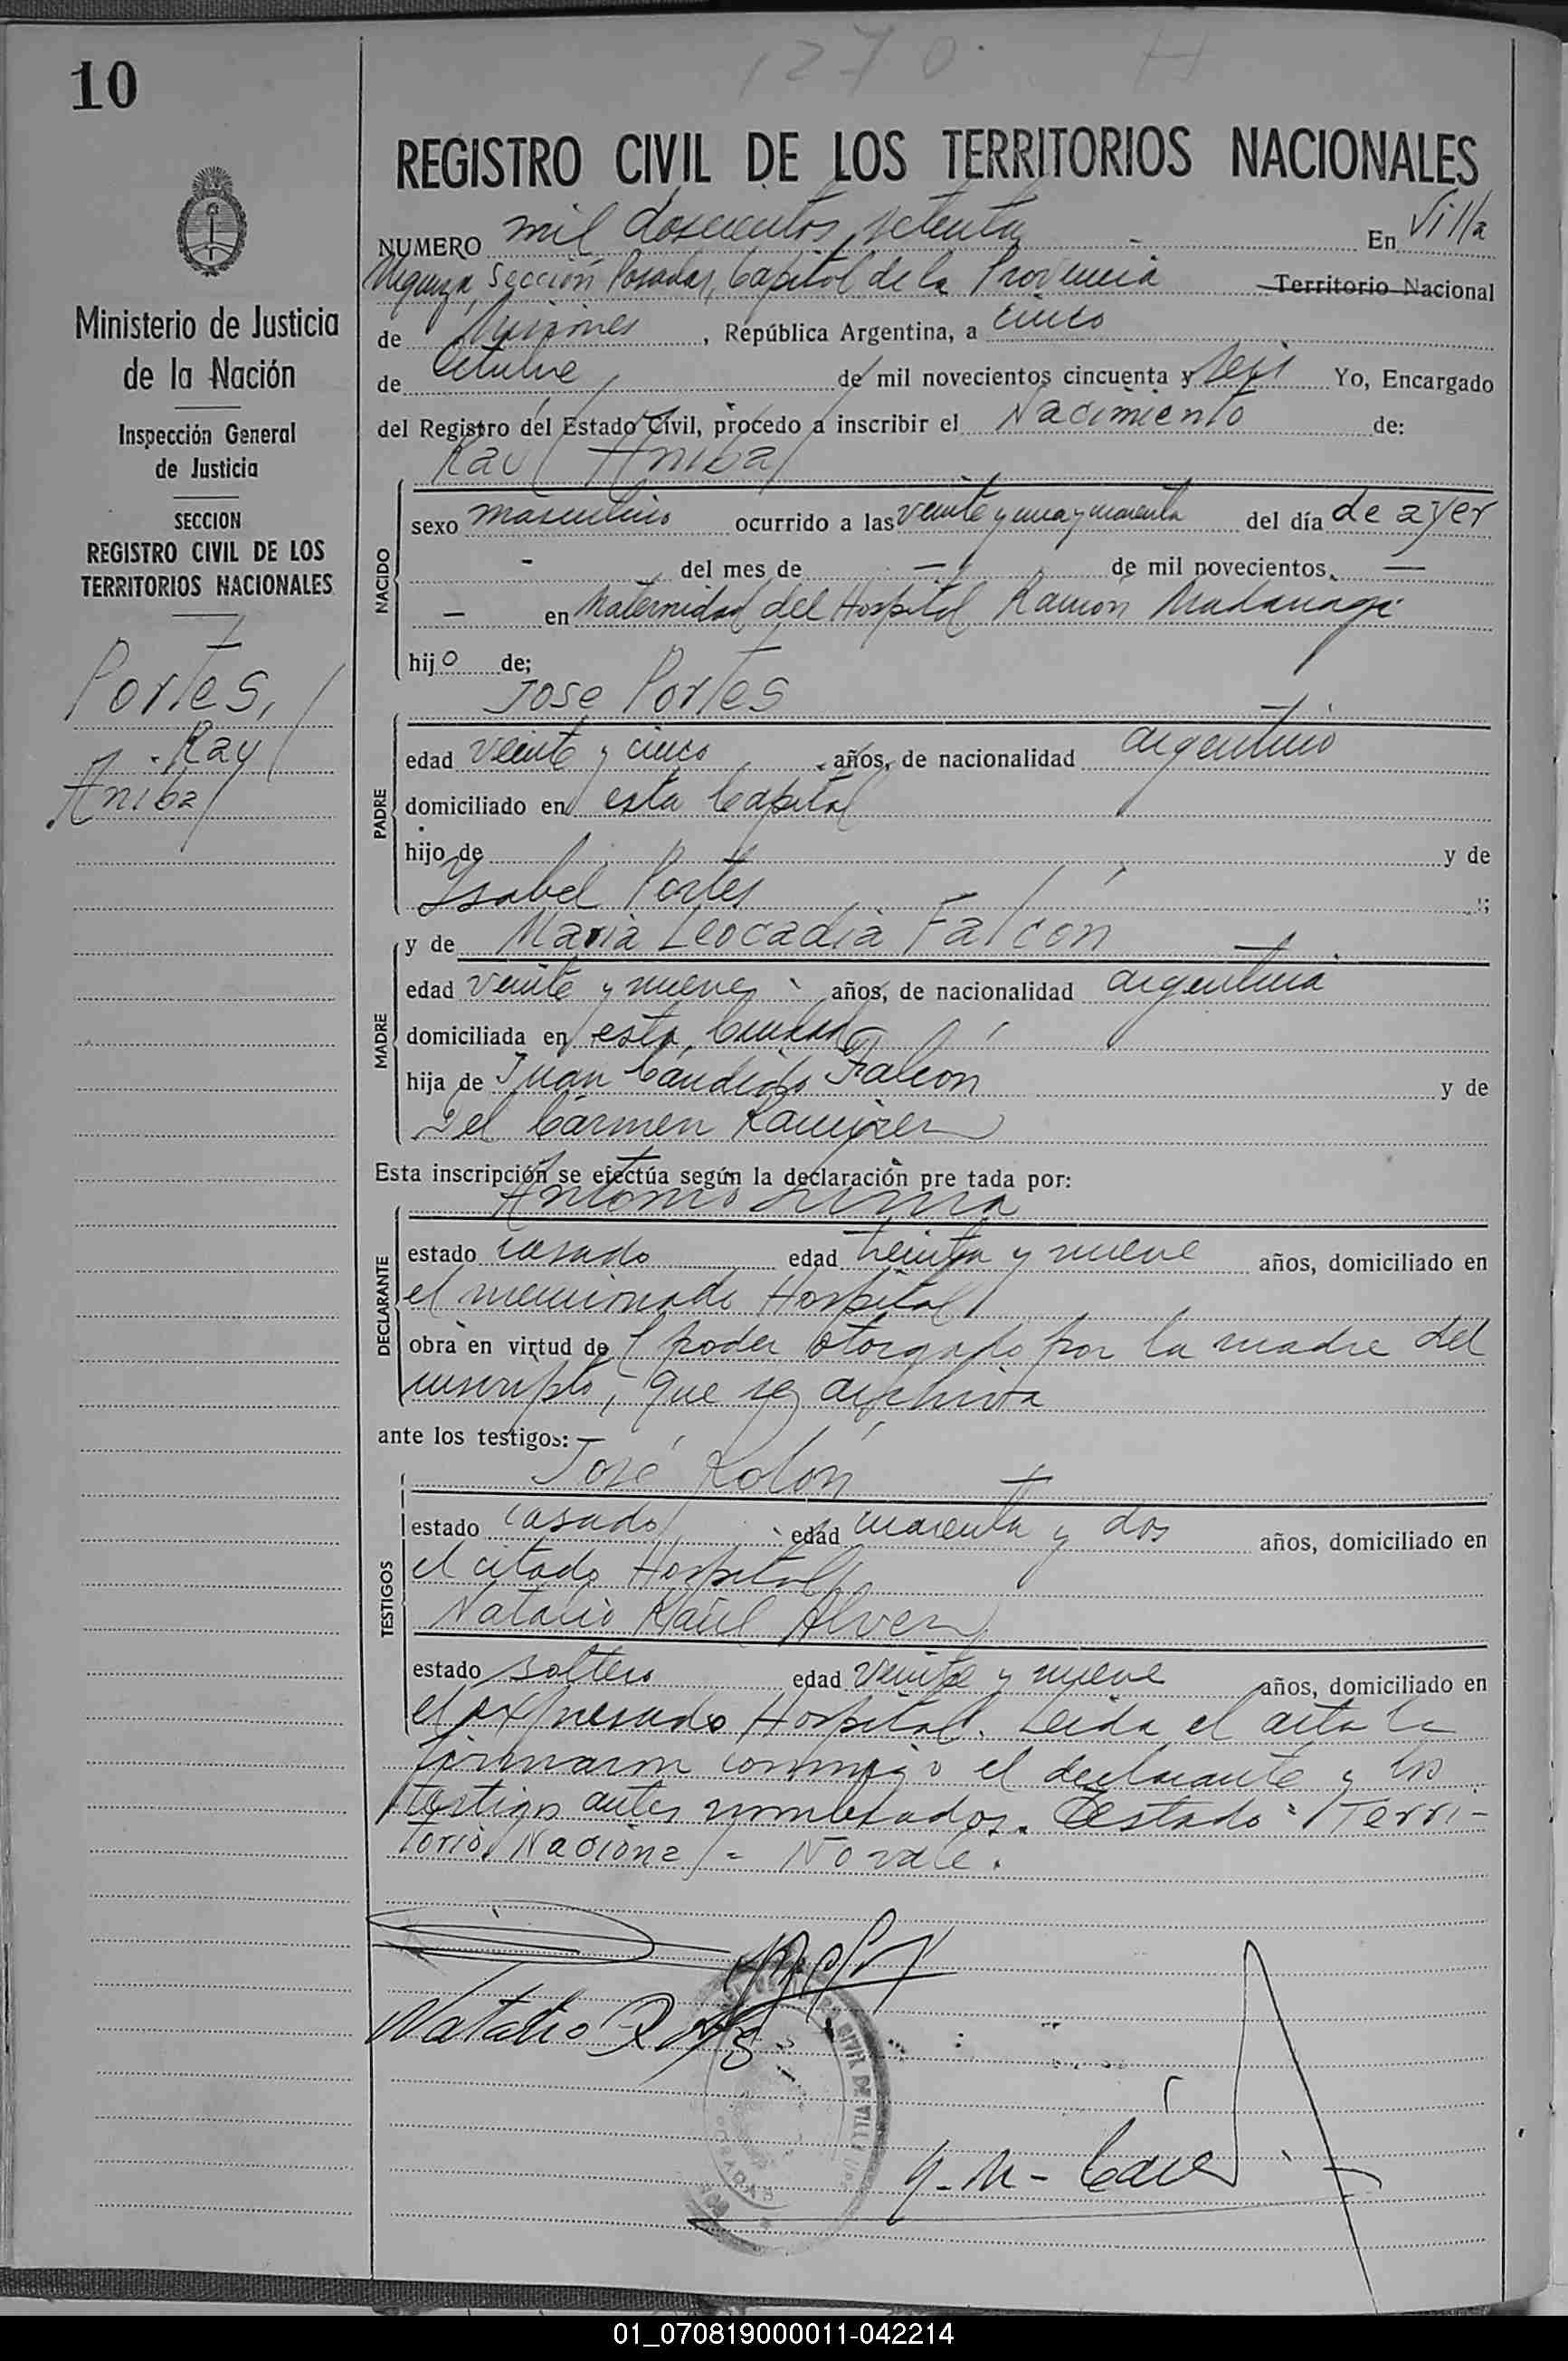 1270 H
10
REGISTRO CIVIL DE LOS TERRITORIOS NACIONALES
NUMERO mil doscientos setenta - En Villa
Urquiza, Sección Posadas, Capital de la Provincia Territorio Nacional
de Misiones, República Argentina, a cinco
de Octubre de mil novecientos cincuenta y seis Yo, Encargado
del Registro del Estado Civil, procedo a inscribir el Nacimiento de:
Raul Anibal
NACIDO
sexo masculino ocurrido a las veinte y una y cuarenta del día de ayer
- del mes de - de mil novecientos -
- en Maternidad del Hospital Ramón Madariaga
hijo de;
José Portes
PADRE
edad veinte y cinco años, de nacionalidad argentino
domiciliado en esta Capital
hijo de y de
Ysabel Portes ;
MADRE
y de Maria Leocadia Falcón
edad veinte y nueve años, de nacionalidad argentina
domiciliada en esta Ciudad
hija de Juan Candido Falcon y de
del Carmen Ramirez
Esta inscripción se efectúa según la declaración pre tada por:
Antonio Lima
DECLARANTE
estado casado edad treinta y nueve años, domiciliado en
el mencionado Hospital
obra en virtud de l poder otorgado por la madre del
inscripto, que se archiva
ante los testigos:
José Rolón
TESTIGOS
estado casado edad cuarenta y dos años, domiciliado en
el citado Hospital
Natalio Raúl Alvez
estado soltero edad veinte y nueve años, domiciliado en
el expresado Hospital. Leida el acta la
firmaron conmigo el declarante y los
testigos antes nombrados. Testado: Terri-
torio Nacional = No vale.
Natalio R
Ministerio de Justicia
de la Nación
Inspección General
de Justicia
SECCION
REGISTRO CIVIL DE LOS
TERRITORIOS NACIONALES
Portes,
Raul
Anibal
01_070819000011-042214